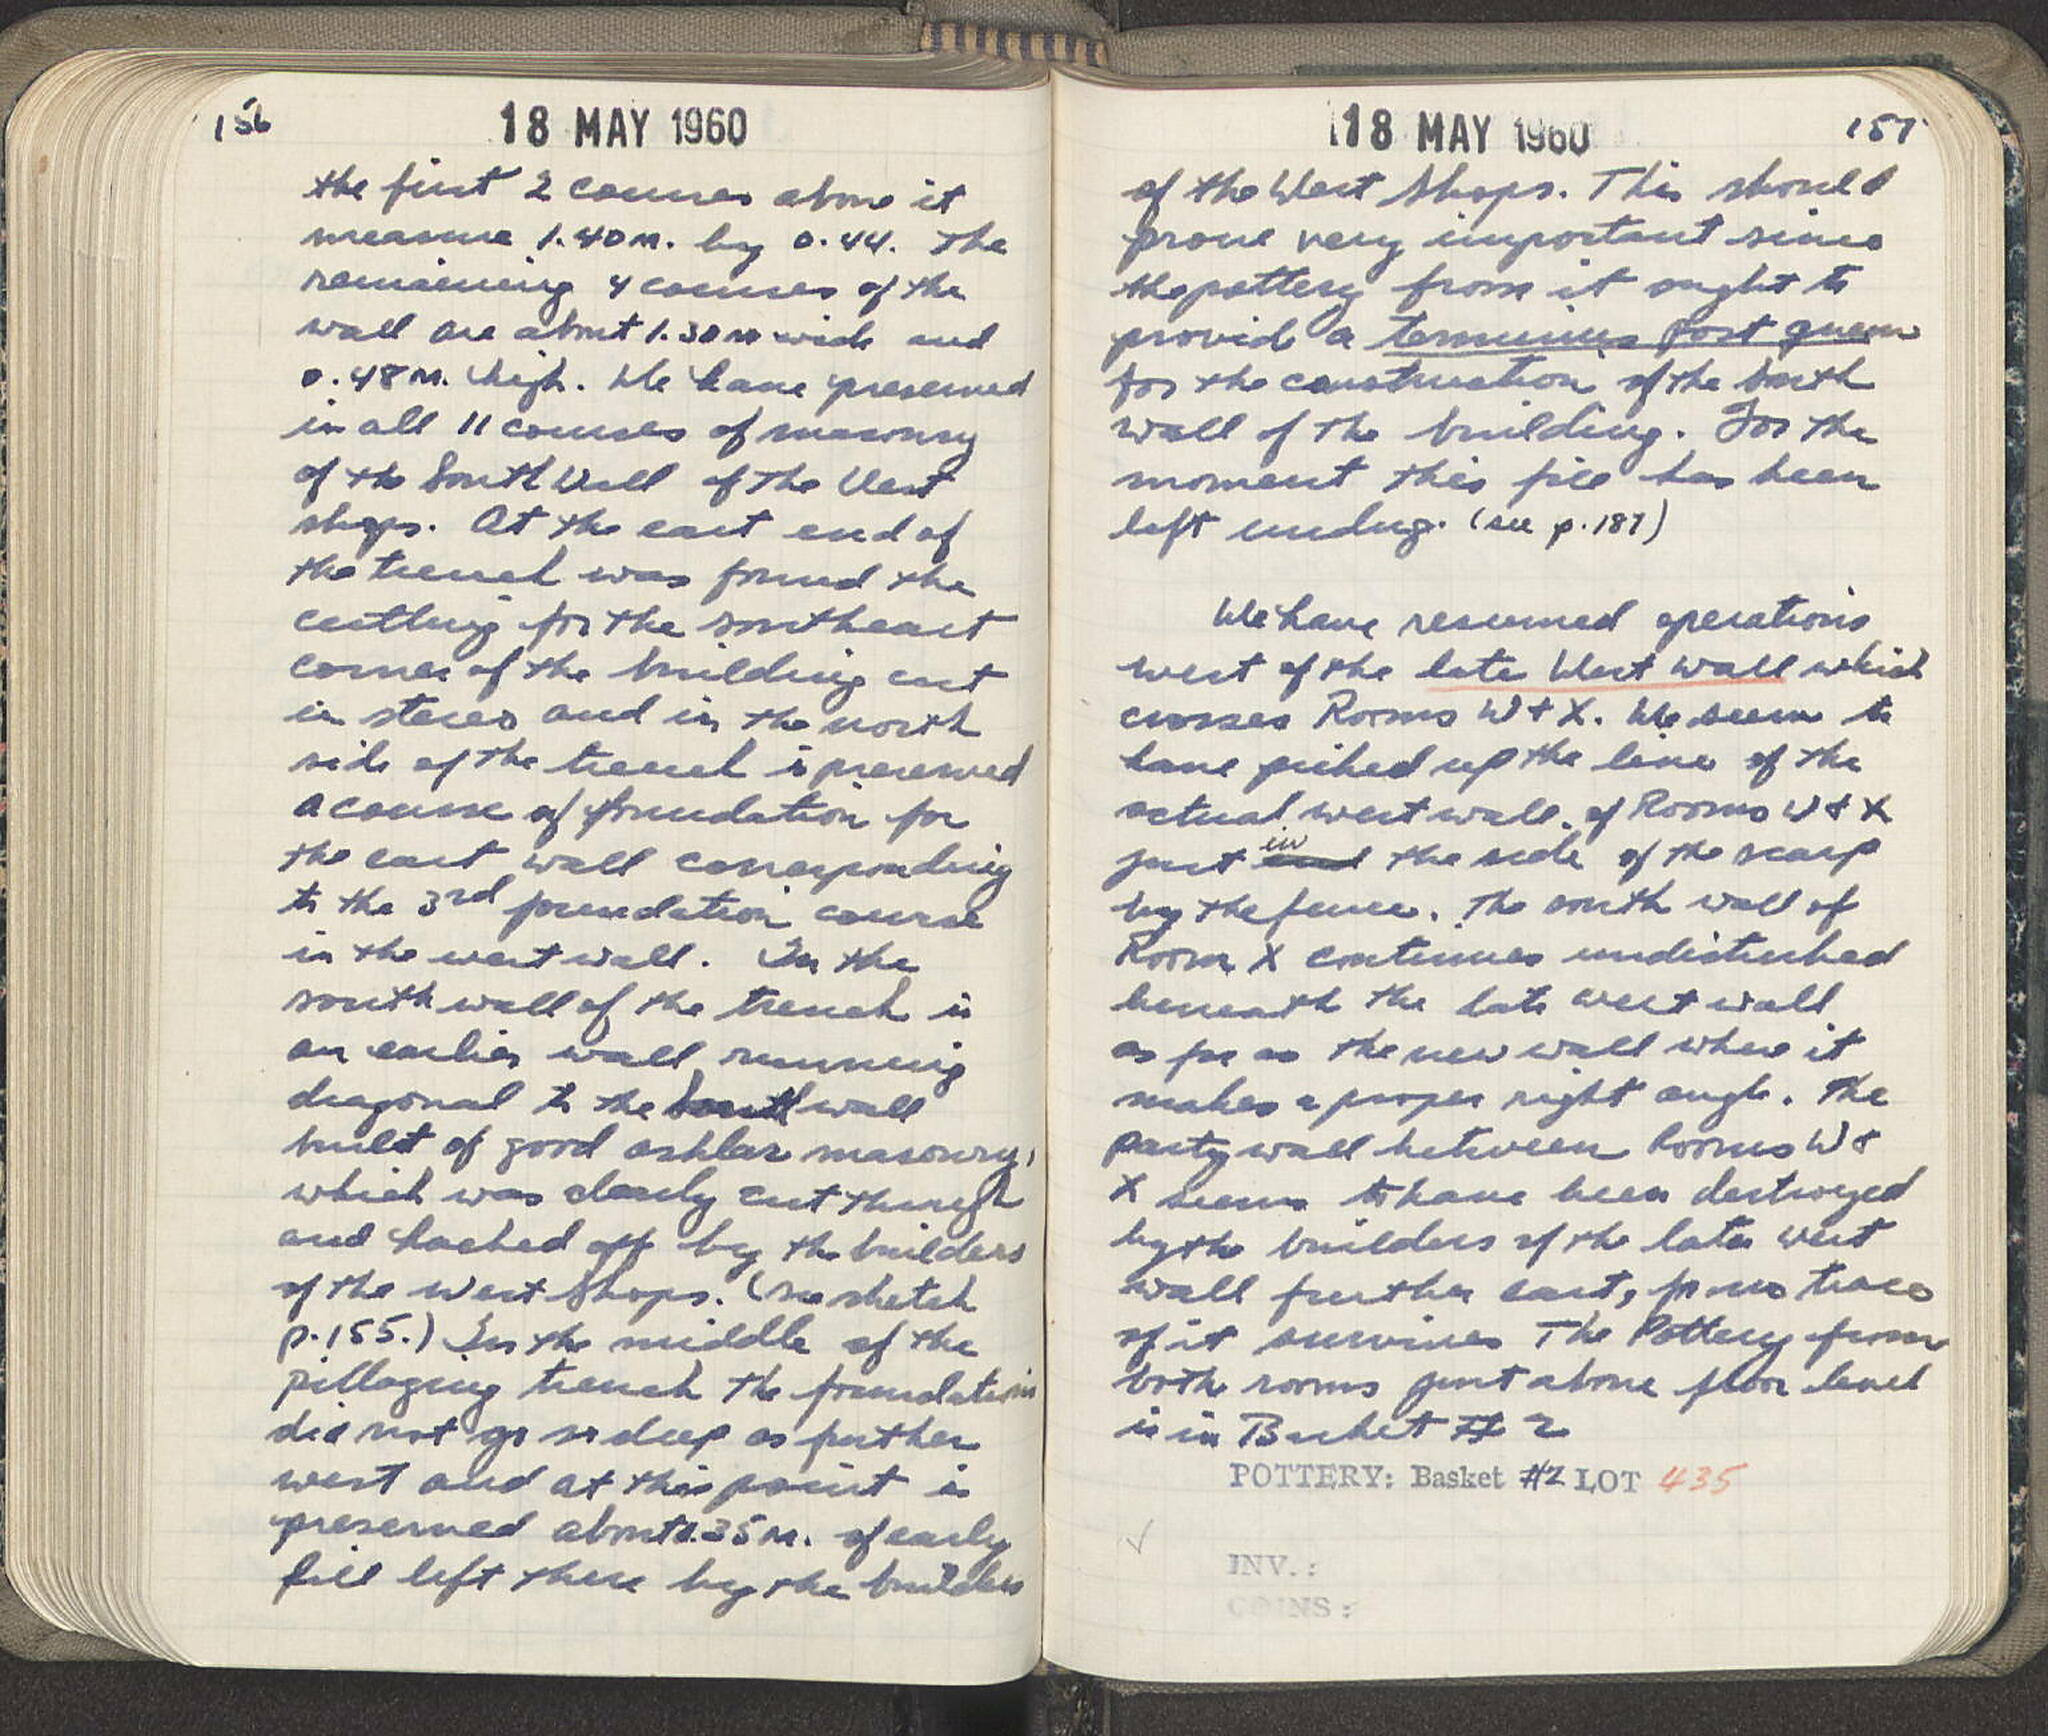 156
18 MAY 1960
the first 2 courses above it
measure 1.40 m. by 0.44. The
remaining 4 courses of the
wall are about 1.30 m wide and
0.48 m. high. We have preserved
in all 11 courses of masonry
of the South Wall of the West
shops. At the east end of
the trench was found the
cutting for the southeast
corner of the building cut
in stereo and in the north
side of the trench is preserved
a course of foundation for
the east wall corresponding
to the 3rd foundation course
in the west wall. In the
south wall of the trench is
an earlier wall running
diagonal to the South wall
built of good ashlar masonry,
which was clearly cut through
and hacked off by the builders
of the West Shops. (see sketch
p. 155.) In the middle of the
pillaging trench the foundations
did not go so deep as further
west and at this point is
preserved about 0.35 m. of early
fill left there by the builders
18 MAY 1960
157
of the West Shops. This should
prove very important since
the pottery from it ought to
provid a terminus post quem
for the construction of the South
wall of the building. For the
moment this fill has been
left undug. (see p. 187)
We have resumed operations
west of the late West wall which
crosses Rooms W + X. We seem to
have picked up the line of the
actual west wall of Rooms W + X
just in the side of the scarp
by the fence. The south wall of
Room X continues undisturbed
beneath the late west wall
as far as the new wall where it
makes a proper right angle. The
party wall between Rooms W +
X seems to have been destroyed
by the builders of the later west
wall further east, for no trace
of it survives The Pottery from
both rooms just above floor level
is in Basket # 2
POTTERY: Basket #2 LOT 435
INV.:
COINS: